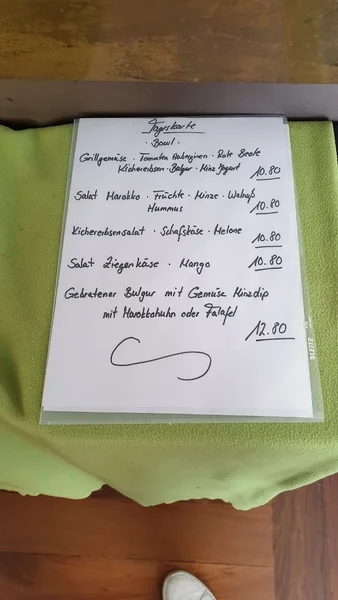 Tageskarte
Bowl.
Grillgemüse · Tomaten Auberginen · Rote Beete
Kichererbsen · Bulgur · Minz Yogurt 10.80
Salat Marokko · Früchte · Minze · Walnuß
Hummus 10.80
Kichererbsensalat · Schafskäse · Melone 10.80
Salat Ziegenkäse · Mango 10.80
Gebratener Bulgur mit Gemüse Minzdip
mit Marokkohuhn oder Falafel
12.80